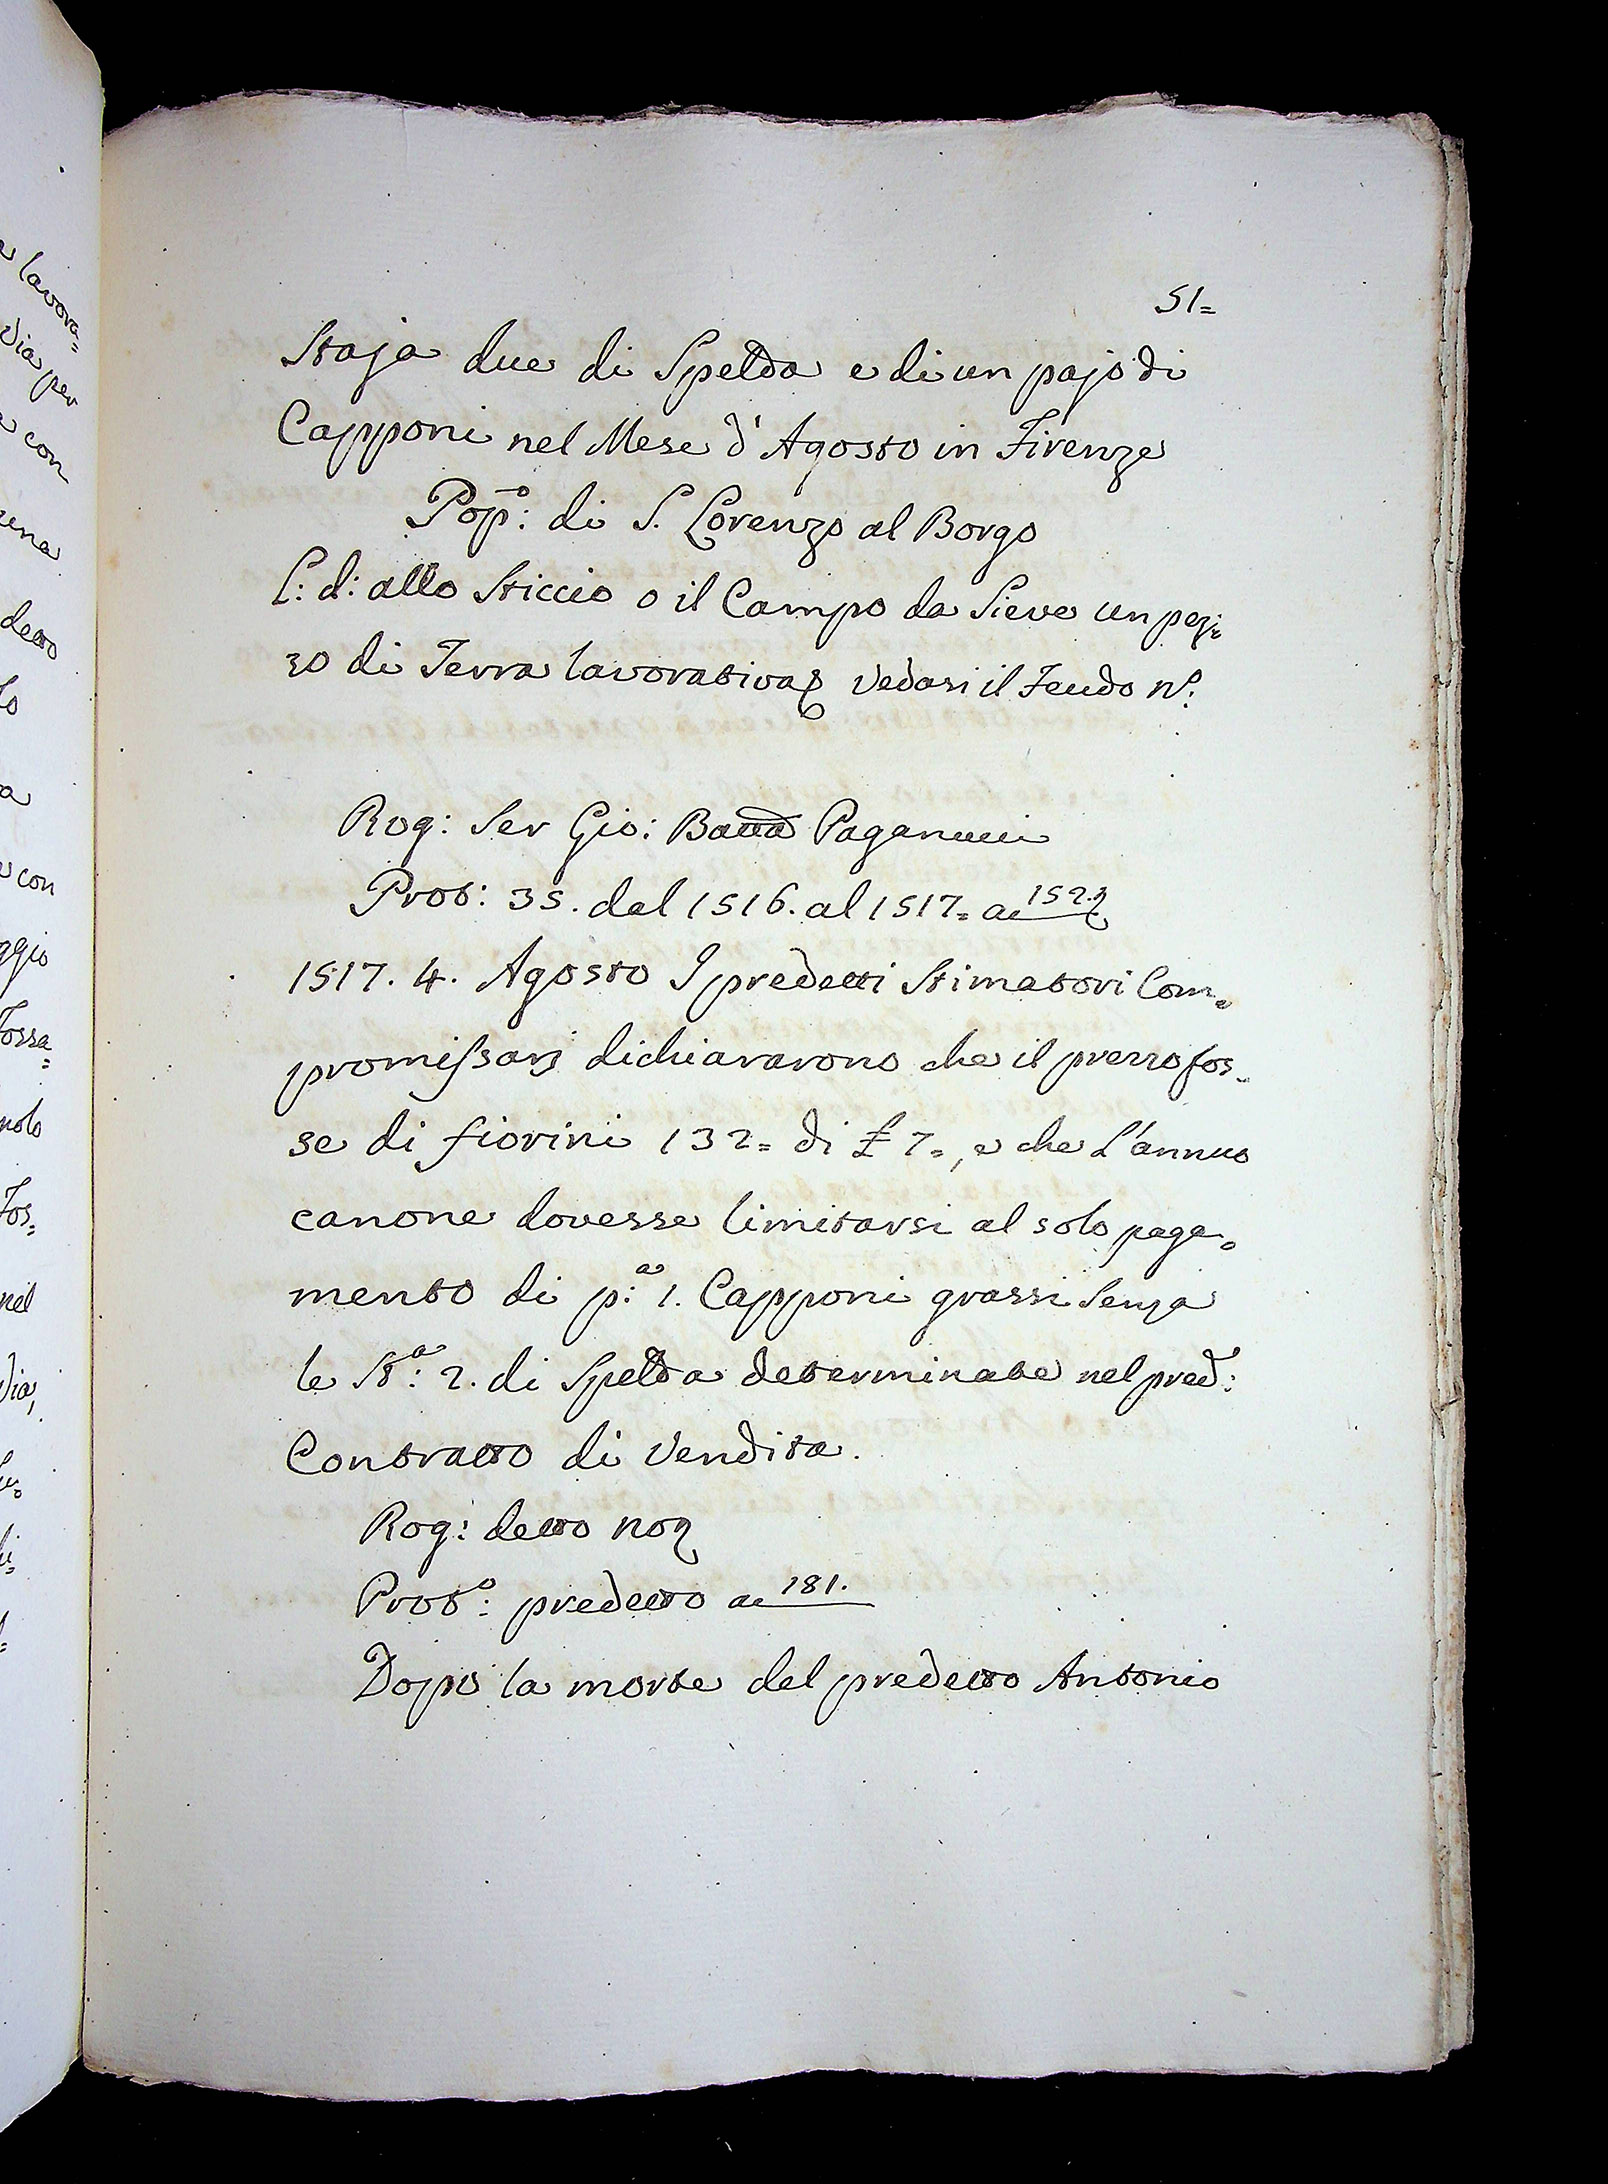 51=
Staja due di Spelda e di un pajo di
Capponi nel Mese d'Agosto in Firenze
Pop:º di S. Lorenzo al Borgo
L: d: allo Sticcio o il Campo da Sieve un pez=
zo di Terra lavorativa Vedasi il Feudo Nº:
Rog: Ser Gio: Batta Paganucci
Prot: 35. dal 1516. al 1517= a 152.
1517. 4. Agosto I predetti Stimatori Com=
promissarj dichiararono che il prezzo fos=
se di fiorini 132= di £ 7=, e che L'annuo
canone dovesse limitarsi al solo paga=
mento di p:ª 1. Capponi grassi Senza
le St:ª 2. di Spelda determinate nel pred:
Contratto di Vendita.
Rog: detto no
Prot:º predetto a 181.
Dopo la morte del predetto Antonio
lavora=
via per
con
una
detto
lo
a
con
ggio
Fossa=
nolo
Fos=
nel
via,